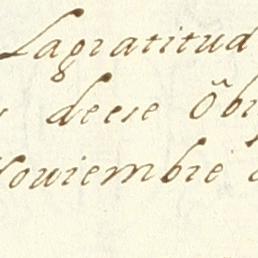 Lagratitud
deese Ôb
Nouiembre